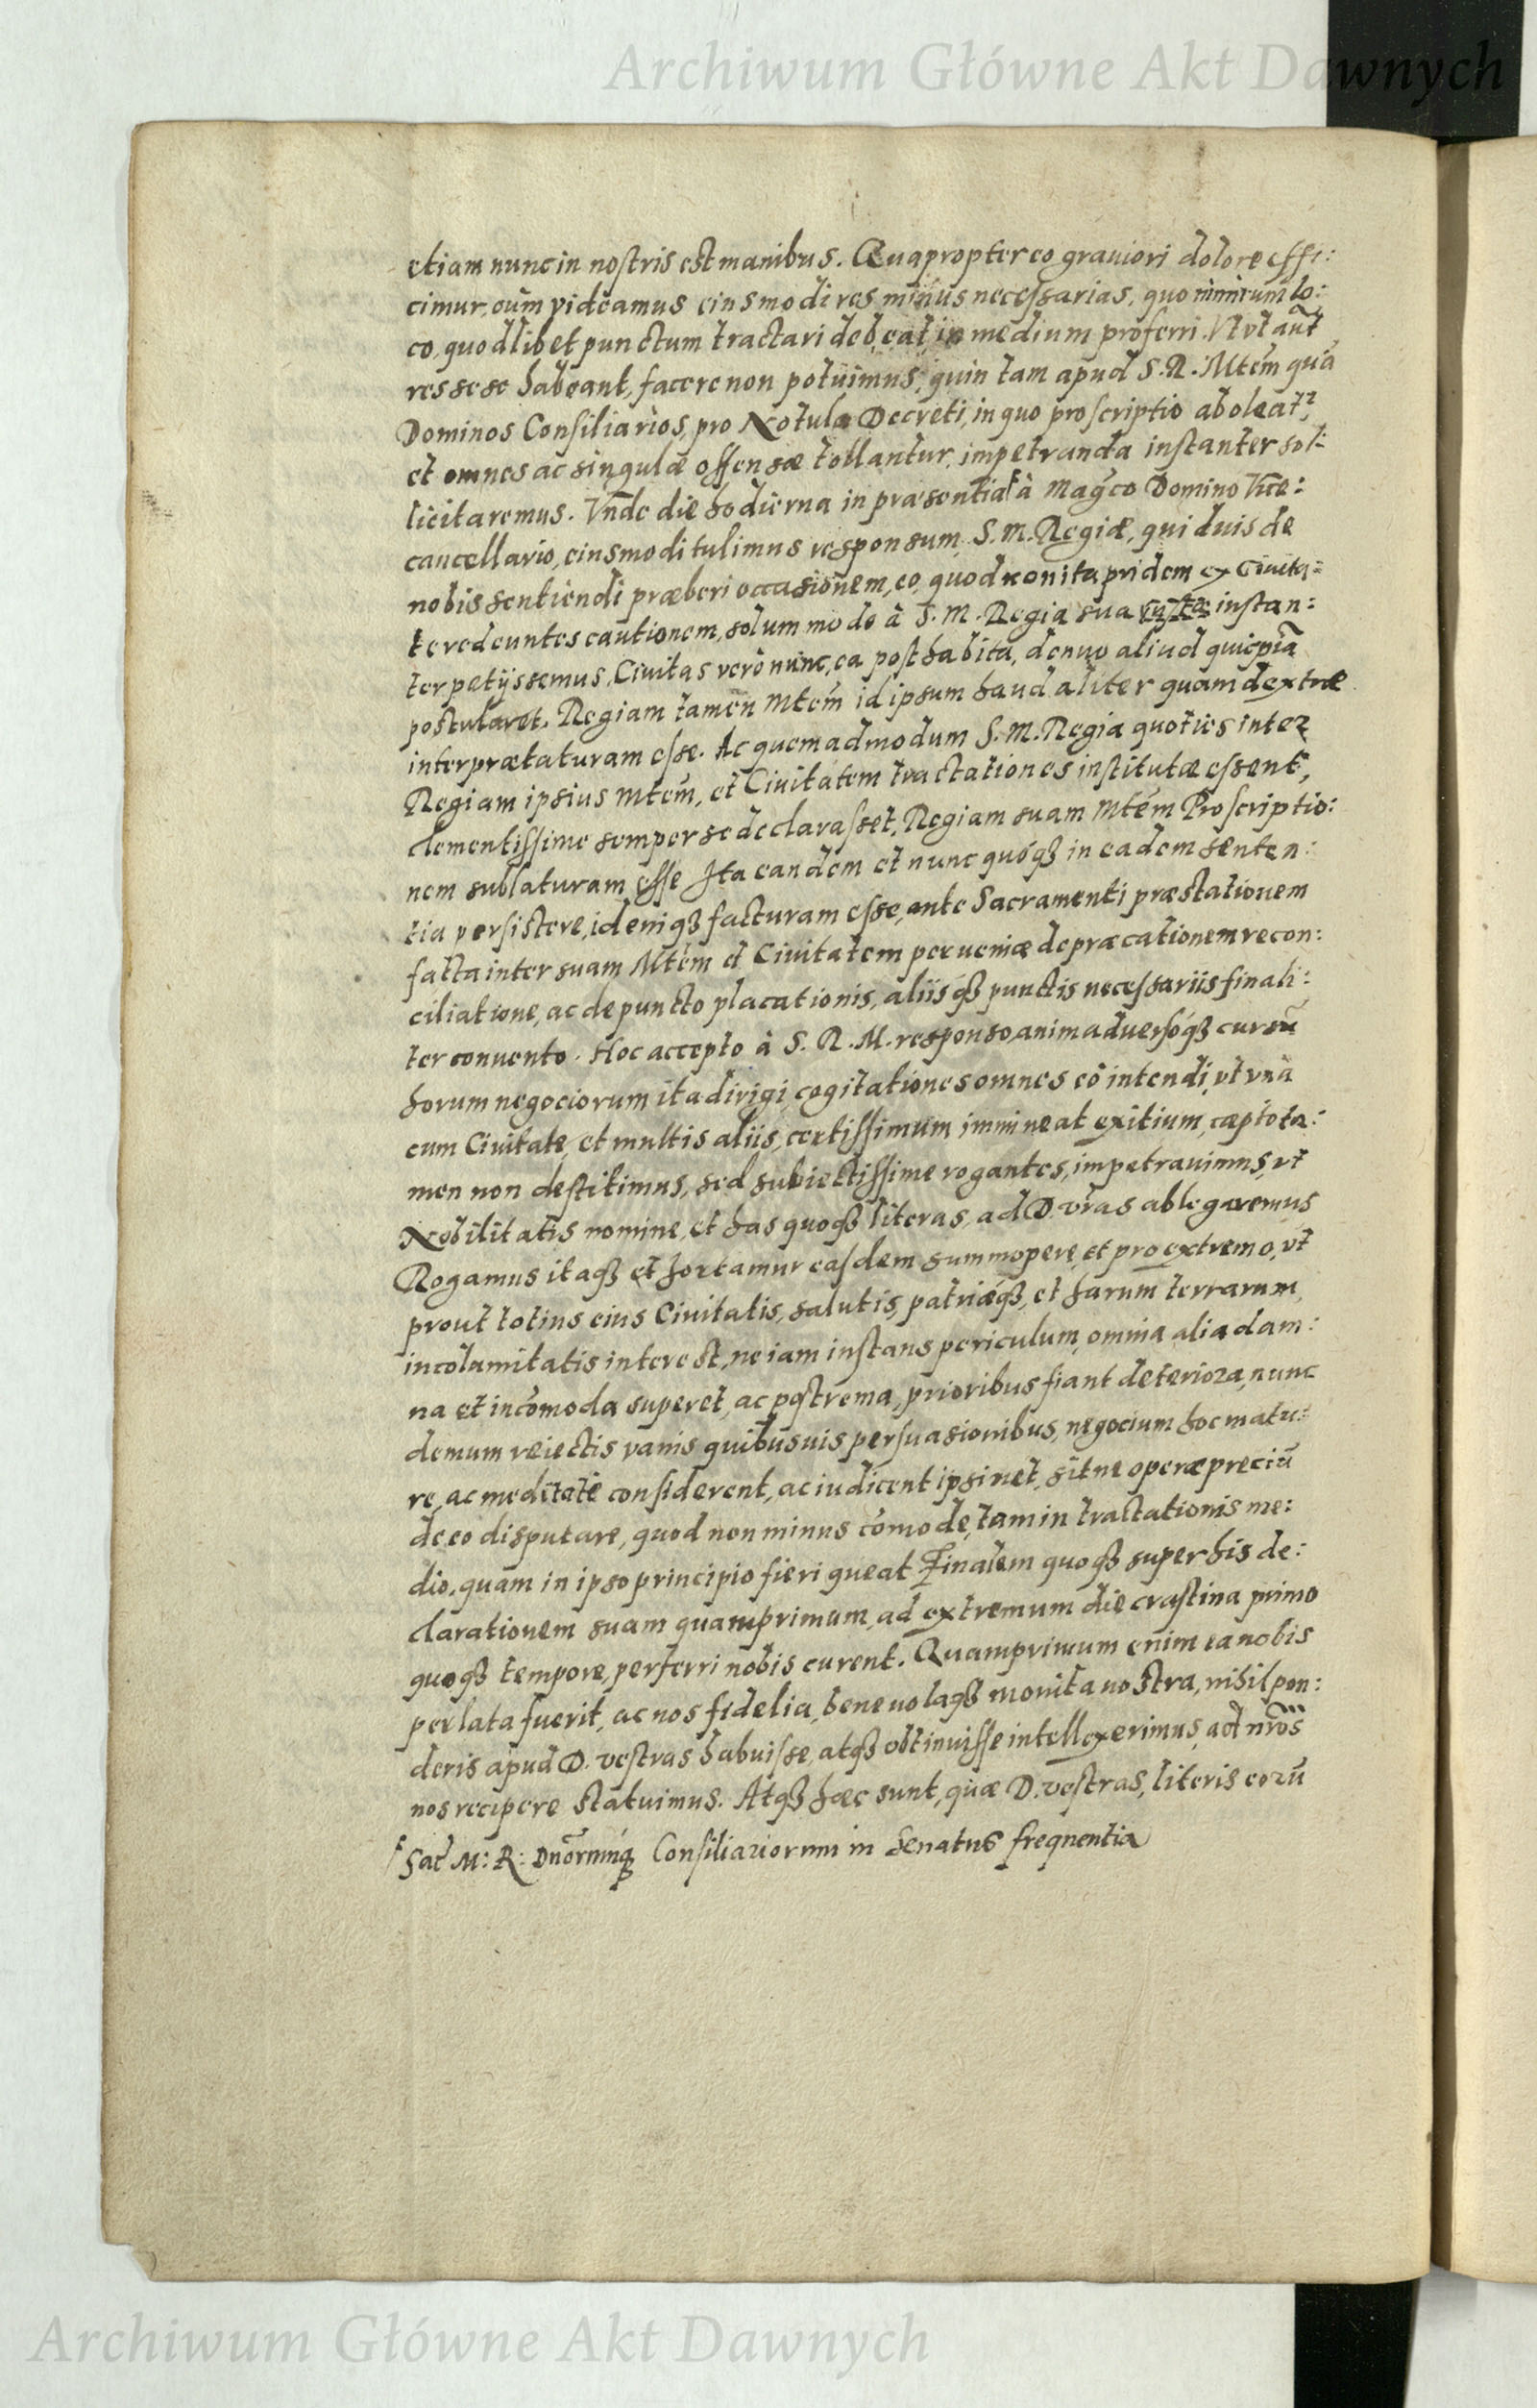 Archiwum Główne Akt Dawnych
etiam nunc in nostris est manibus. Quapropter eo grauiori dolore effi:
cimur, cum videamus eiusmodi res minus necessarias, quo nimirum lo:
co, quodlibet punctum tractari debeat, in medium proferri. Vt vt aūt
res sese habeant, facere non potuimus, quin tam apud S. R. Mtēm quā
Dominos Consiliarios, pro Notula Decreti, in quo proscriptio aboleatr,
et omnes ac singulæ offensæ tollantur, impetranda instanter sol:
licitaremus. Vnde die hodierna in præsentia à Magco Domino Vice:
cancellario, eiusmodi tulimus responsum, S. M. Regiæ, qui duis de
nobis sentiendi præberi occasionem, eo, quod non ita pridem ex Ciuita:
te redeuntes cautionem, solummodo à S. M. Regia sua instan:
ter petijssemus, Ciuitas verò nunc, ea posthabita, denuo aliud quicpiā
postularet. Regiam tamen Mtēm id ipsum haud aliter quam dextræ
interprætaturam esse. Ac quemadmodum S. M. Regia quoties inter
Regiam ipsius Mtēm, et Ciuitatem tractationes institutæ essent,
clementissime semper se declarasset, Regiam suam Mtēm Proscriptio:
nem sublaturam esse Ita eandem et nunc quóqȝ in eadem senten:
tia persistere, idemqȝ facturam esse, ante Sacramenti præstationem
facta inter suam Mtēm et Ciuitatem per ueniæ depræcationem recon:
ciliatione, ac de puncto placationis, aliisqȝ punctis necessariis finali:
ter conuento. Hoc accepto à S. R. M. responso, animaduersóqȝ cursū
horum negociorum ita dirigi, cogitationes omnes eò intendi, vt vnà
cum Ciuitate, et multis aliis, certissimum immineat exitium, cæpto ta:
men non destitimus, sed subiectissime rogantes, impetrauimus, vt
Nobilitatis nomine, et has quoqȝ literas, ad D. vr̃as ablegaremus
Rogamus itaqȝ et hortamur easdem summopere, et pro extremo, vt
prout totius eius Ciuitatis, salutis, patriǽqȝ, et harum terrarum,
incolumitatis interest, ne iam instans periculum, omnia alia dam:
na et incōmoda superet, ac postrema, prioribus fiant deteriora, nunc
demum reiectis vanis quibusuis persuasionibus, negocium hoc matu:
re, ac meditatè considerent, ac iudicent ipsimet, sit ne operæprecīu
de eo disputare, quod non minus cōmode, tam in tractationis me:
dio, quam in ipso principio fieri queat Finalem quoqȝ super his de:
clarationem suam quamprimum, ad extremum die crastina primo
quoqȝ tempore, perferri nobis curent. Quamprimum enim ea nobis
perlata fuerit, ac nos fidelia, beneuolaqȝ monita nostra, nihil pon:
deris apud D. vestras habuisse, atqȝ obtinuisse intellexerimus, ad nr̃os
nos recipere statuimus. Atqȝ hæc sunt, quæ D. vestras, literis eorū
Sac M: R: Dnōrumq Consiliariorum in Senatus frequentia
Archiwum Główne Akt Dawnych